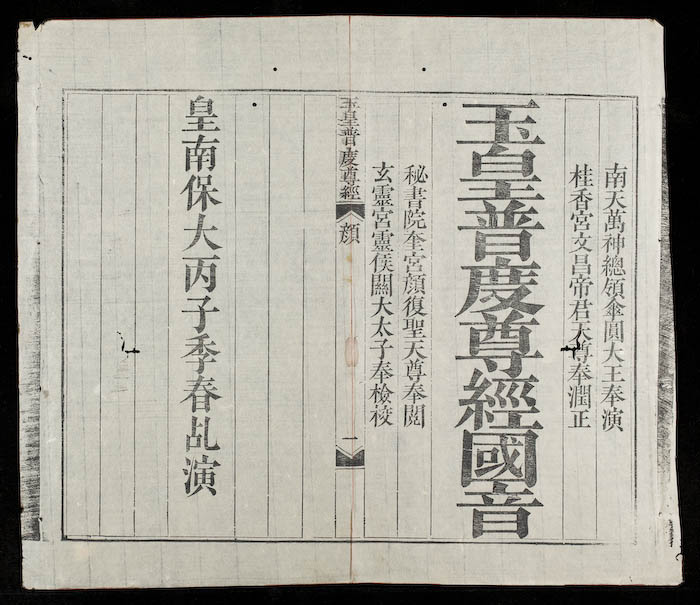 南天萬神總領傘圓大王奉演
桂香宮文昌帝君天尊奉潤正
玉皇普度尊經國音
秘書院奎宮顔復聖天尊奉閲
玄靈宮靈侯關大太子奉檢校
玉皇普度尊經
顔
一
皇南保大丙子季春乩演